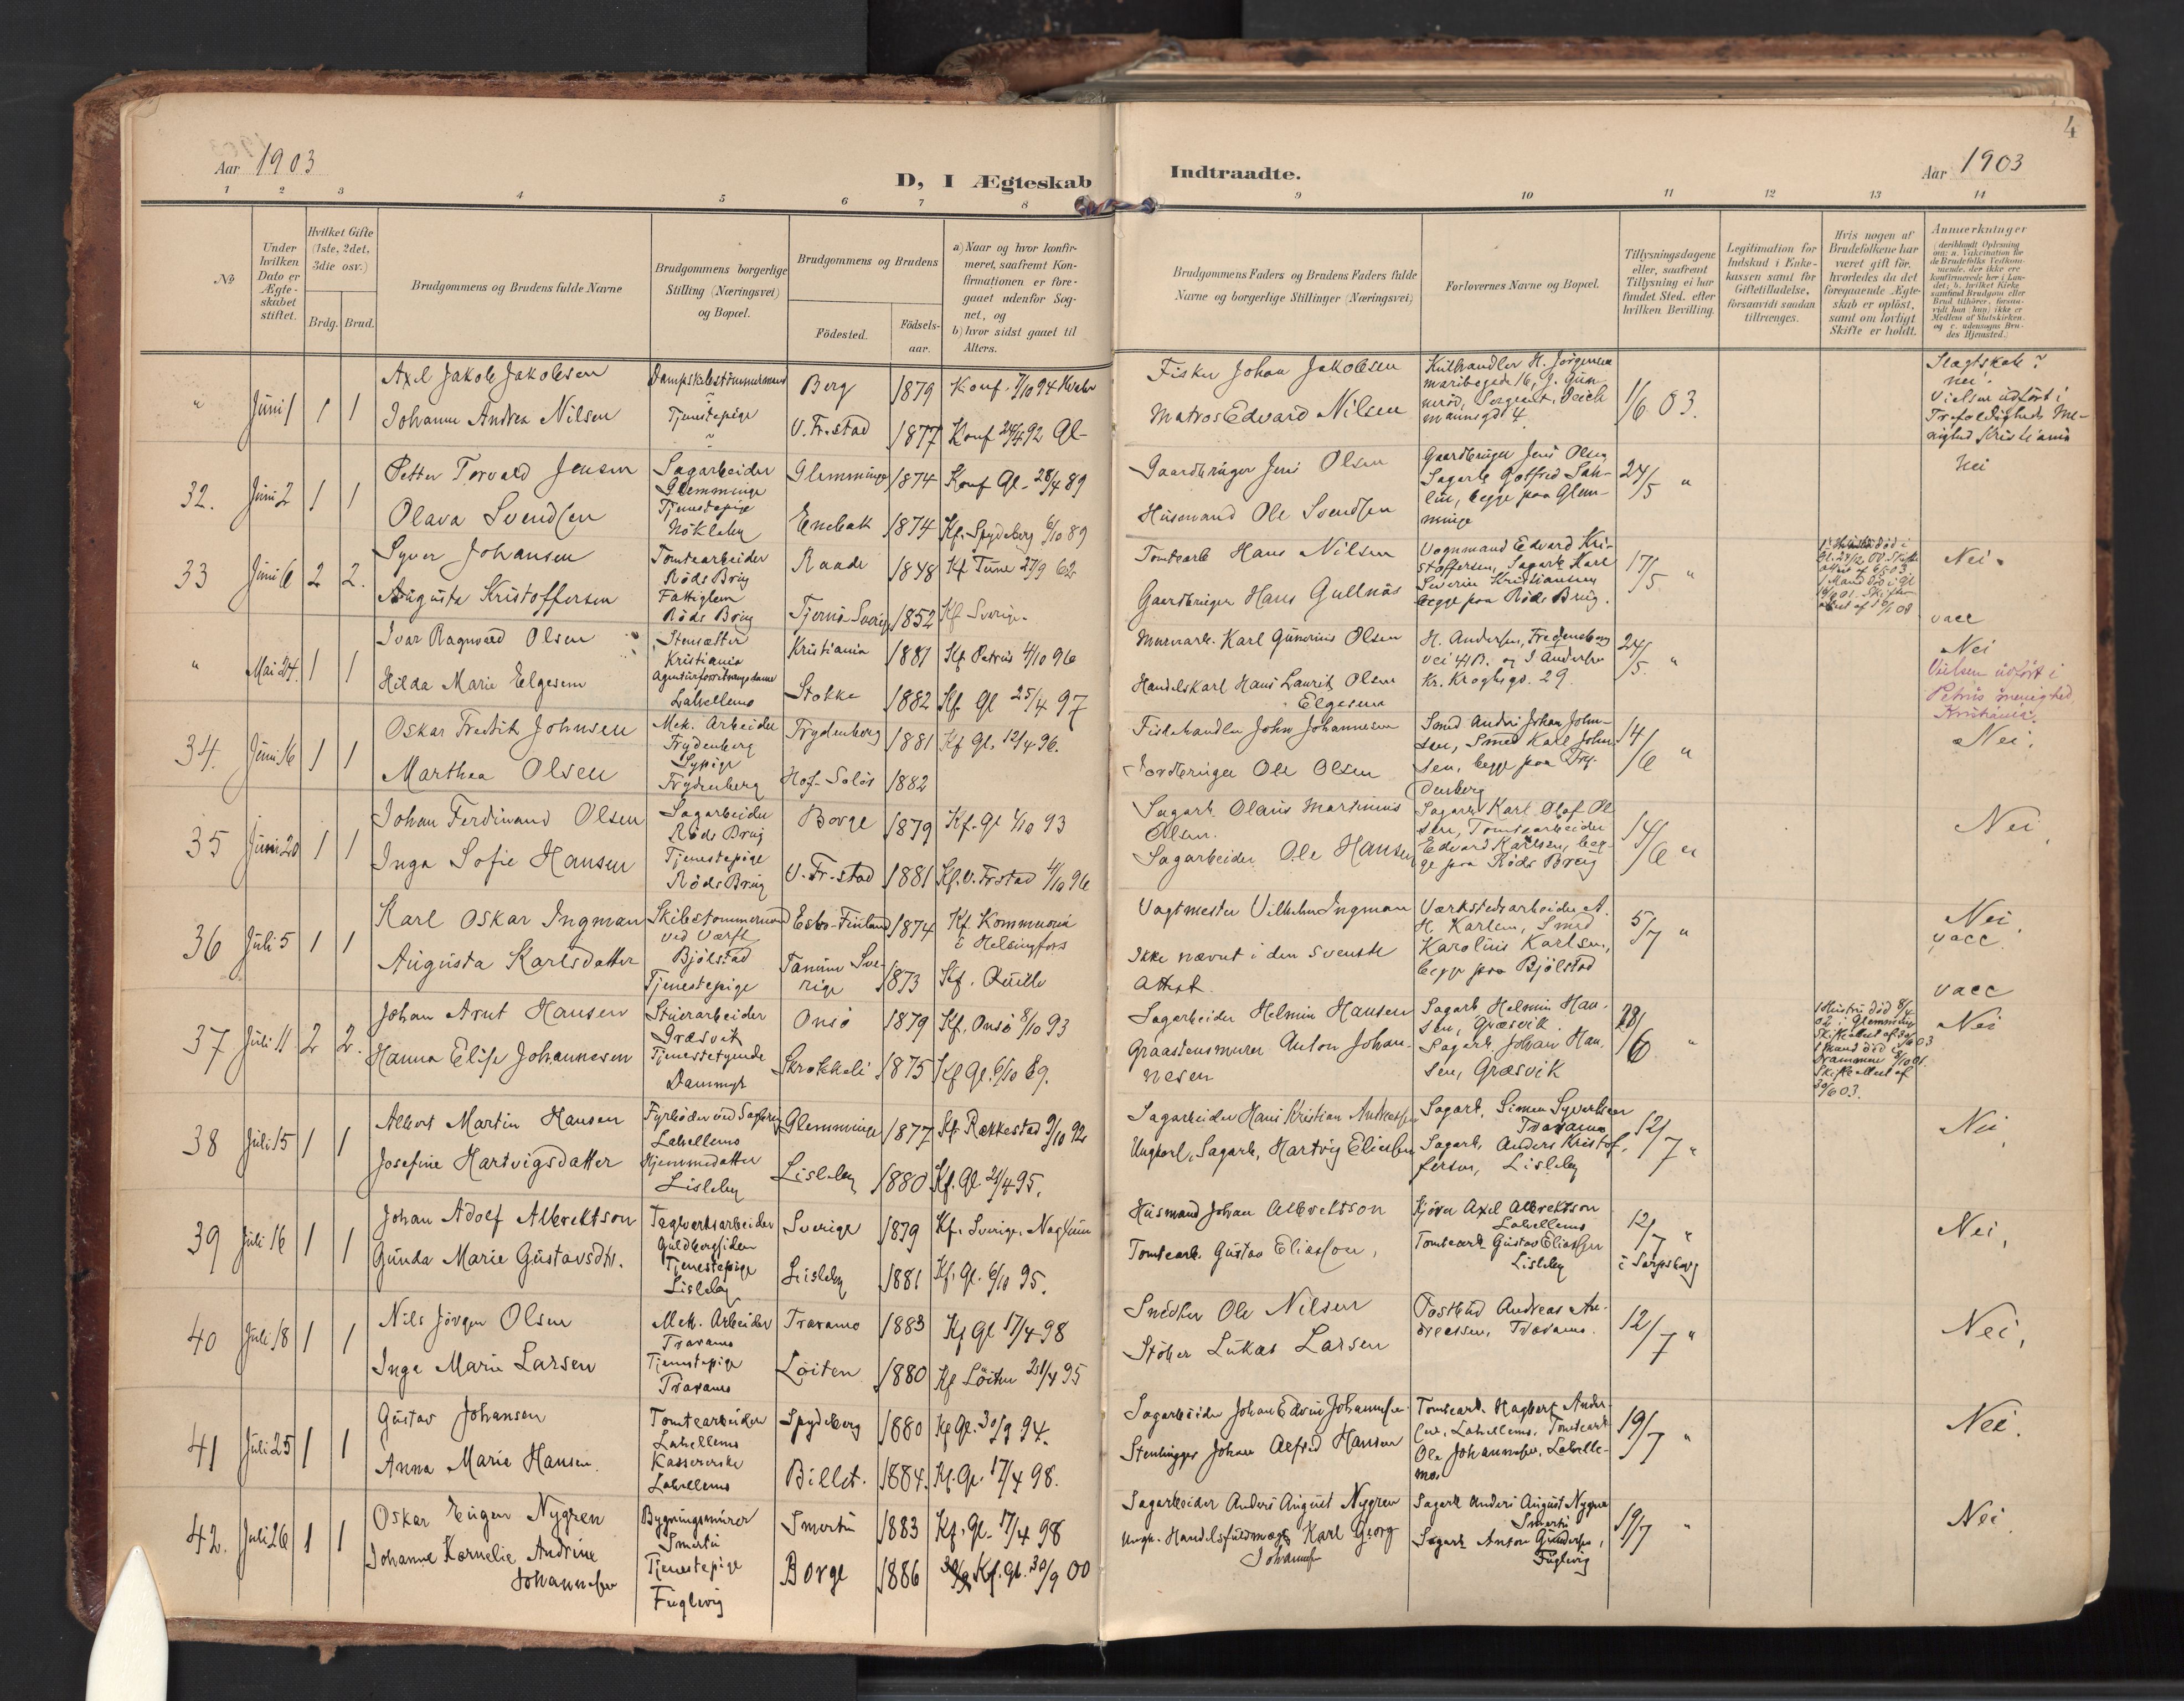 Aar 1903
D, I Ægteskab
Indtraadte.
Aar 1903
4
1 2 3 4 5 6 7 8 9 10 11 12 13 14
No
Under hvilken Dato er Ægteskabet stiftet.
Hvilket Gifte (1ste, 2det, 3die osv.)
Brdg. Brud.
Brudgommens og Brudens fulde Navne
Brudgommens borgerlige Stilling (Næringsvei) og Bopæl.
Brudgommens og Brudens
Födested.
Födselsaar.
a) Naar og hvor konfirmeret, saafremt Konfirmationen er foregaaet udenfor Sognet, og
b) hvor sidst gaaet til Alters.
Brudgommens Faders og Brudens Faders fulde Navne og borgerlige Stillinger (Næringsvei)
Forlovernes Navne og Bopæl.
Tillysningsdagene eller, saafremt Tillysning ei har fundet Sted, efter hvilken Bevilling.
Legitimation for Indskud i Enkekassen samt for Giftetilladelse, forsaavidt saadan tiltrænges.
Hvis nogen af Brudefolkene har været gift för, hvorledes da det foregaaende Ægteskab er oplöst, samt om lovligt Skifte er holdt.
Anmærkninger
(deriblandt Oplysning om: a. Vakcination for de Brudefolks Vedkommende, der ikke ere konfirmerede her i Landet; b. hvilket Kirkesamfund Brudgom eller Brud tilhörer, forsaavidt han (hun) ikke er Medlem af Statskirken, og c. udensogns Brudes Hjemsted.)
" Juni 1 1 1
Axel Jakob Jakobsen
Dampskibstømmermand
Berg 1879 Konf. 7/10 94
Fisker Johan Jakobsen
Kulhandler H. Jørgensen
1/6 03.
Slagtskab?
nei.
Johanne Andrea Nilsen
Tjenestepige
V. Fr.stad 1877 Konf 24/4 92 Gl-
Matros Edvard Nilsen
Vielsen udført i
Trefoldigheds Menighed Kristiania
32. Juni 2 1 1
Petter Torvald Jensen
Sagarbeider
Glemminge
Glemminge 1874 Konf Gl- 28/4 89
Gaardbruger Jens Olsen
Gaardbruger Jens Olsen
Sagarb Gotfred
begge paa Glemminge
24/5 "
Nei
Olava Svendsen
Tjenestepige
Nökleby
Enebak 1874 Kf. Spydeberg 6/10 89
Husmand Ole Svendsen
33 Juni 6 2 2.
Syver Johansen
Tomtearbeider
Röds Brug
Raade 1848 Kf Tune 27/9 62
Tomtearb Hans Nilsen
Vognmand Edvard Kristoffersen, Sagarb Karl
Severin Kristiansen
begge paa Röds Brug.
17/5 "
Nei.
Augusta Kristoffersen
Fattiglem
Röds Brug
Tjernö Sverige 1852 Kf Sverige.
Gaardbruger Hans Gullnäs
vacc
" Mai 24. 1 1
Ivar Ragnvald Olsen
Stensætter
Kristiania
Kristiania 1881 Kf Petrus 4/10 96
Murerarb. Karl Gunerius Olsen
H. Andersen, Fredensborgvei 41 B. og J Andersen
Kr. Kroghsgd. 29.
24/5. "
Nei
Hilda Marie Elgesem
Agenturforretningsdame
Lahellemo
Stokke 1882 Kf Gl 25/4 97
Handelskarl Hans Laurits Olsen
Elgesem
Vielsen udført i
Petrus menighed
Kristiania.
34. Juni 16 1 1
Oskar Fredrik Johnsen
Mek. Arbeider
Frydenberg
Frydenberg 1881 Kf Gl. 12/4 96.
Fiskehandler John Johannesen
Smed Andrè Johan Johnsen, Smed Karl Johnsen, begge paa Frydenberg
14/6 "
Nei.
Marthea Olsen
Sypige
Frydenberg
Hof-Solör 1882
Jordbruger Ole Olsen
35 Juni 20 1 1
Johan Ferdinand Olsen
Sagarbeider
Röds Brug
Borge 1879 Kf. Gl 1/10 93
Sagarb. Olaus Martinius
Olsen.
Sagarb Karl Olaf Olsen, Tomtearbeider
Edvard Karlsen, begge paa Röds Brug
14/6 "
Nei.
Inga Sofie Hansen
Tjenestepige
Röds Brug
V. Fr.stad 1881 Kf. V. Frstad 4/10 96
Sagarbeider Ole Hansen
36 Juli 5 1 1
Karl Oskar Ingman
Skibstømmermand
ved Værft
Bjölstad
Esbo-Finland 1874 Kf Kommunia
i Helsingfors
Vagtmester Vilhelm Ingman
Værkstedsarbeider A.
H. Karlsen, Smed
Karolius Karlsen,
begge paa Bjölstad
5/7 "
Nei.
vacc.
Augusta Karlsdatter
Tjenestepige
Tanum Sverige 1873 Kf. Quille
Ikke nævnt i den svenske
Attest.
vacc
37 Juli 11 2 2.
Johan Arnt Hansen
Stuerarbeider
Græsvik
Onsö 1879 Kf. Onsö 8/10 93
Sagarbeider Helmin Hansen
Sagarb, Helmin Hansen, Græsvik.
Sagarb, Johan Hansen, Græsvik
28/6 "
Nei
Hanna Elise Johannesen
Tjenestetyende
Dammyr
1875 Kf Gl. 6/10 89.
Graastensmurer Anton Johannesen
38 Juli 15 1 1
Albert Martin Hansen
Fyrbøder ved Sagbrug
Lahellemo
Glemminge 1877 Kf. Rakkestad 9/10 92
Sagarbeider Hans Kristian Andreassen
Sagarb. Simen Syvertsen
Traramo
12/7 "
Nei.
Josefine Hartvigsdatter
Hjemmedatter
Lisleby
Lisleby 1880 Kf. Gl. 21/4 95.
Ungkarl, Sagarb, Hartvig Eliassen
Sagarb, Anders Kristoffersen, Lisleby
39 Juli 16 1 1
Johan Adolf Albrektson
Teglverksarbeider
Guldbergsiden
Sverige 1879 Kf. Sverige
Husmand Johan Albrektson
Kjörer Axel Albrektson
Lahellemo
12/7 "
Nei,
Gunda Marie Gustavsdtr.
Tjenestepige
Lisleby
Lisleby 1881 Kf. Gl. 6/10 95.
Tomtearb. Gustav Eliassen,
Tomtearb Gustav Eliassen
Lisleby
i Sarpsborg
40 Juli 18 1 1
Nils Jörgen Olsen
Mek. Arbeider
Traramo
Traramo 1883 Kf Gl 17/4 98
Snedker Ole Nilsen
Postbud Andreas Andreassen, Traramo.
12/7 "
Nei,
Inga Marie Larsen
Tjenestepige
Traramo
Löiten 1880 Kf Löiten 21/4 95
Stöber Lukas Larsen
41 Juli 25 1 1
Gustav Johansen
Tomtearbeider
Lahellemo
Spydeberg 1880 Kf Gl. 30/9 94.
Sagarbeider Johan Edvin Johannsen
Tomtearb. Hagbart Andersen, Lahellemo. Tomtearb
Ole Johannesen, Lahellemo
19/7 "
Nei.
Anna Marie Hansen.
Kassererske
Lahellemo
Billet. 1884. Kf. Gl. 17/4 98.
Stenhugger Johan Alfred Hansen
42. Juli 26 1 1
Oskar Eugen Nygren
Bygningsmurer
Smertu
Smertu 1883 Kf. Gl. 17/4 98
Sagarbeider Anders August Nygren
Sagarb Anders August Nygren
Smertu
19/7 "
Nei.
Johanne Kornelie Andrine
Johannesen
Tjenestepige
Fuglevig
Borge 1886 Kf. Gl. 30/9 00
Ungk. Handelsfuldmægt Karl Georg
Johannesen
Sagarb Anton Gundersen,
Fuglevig